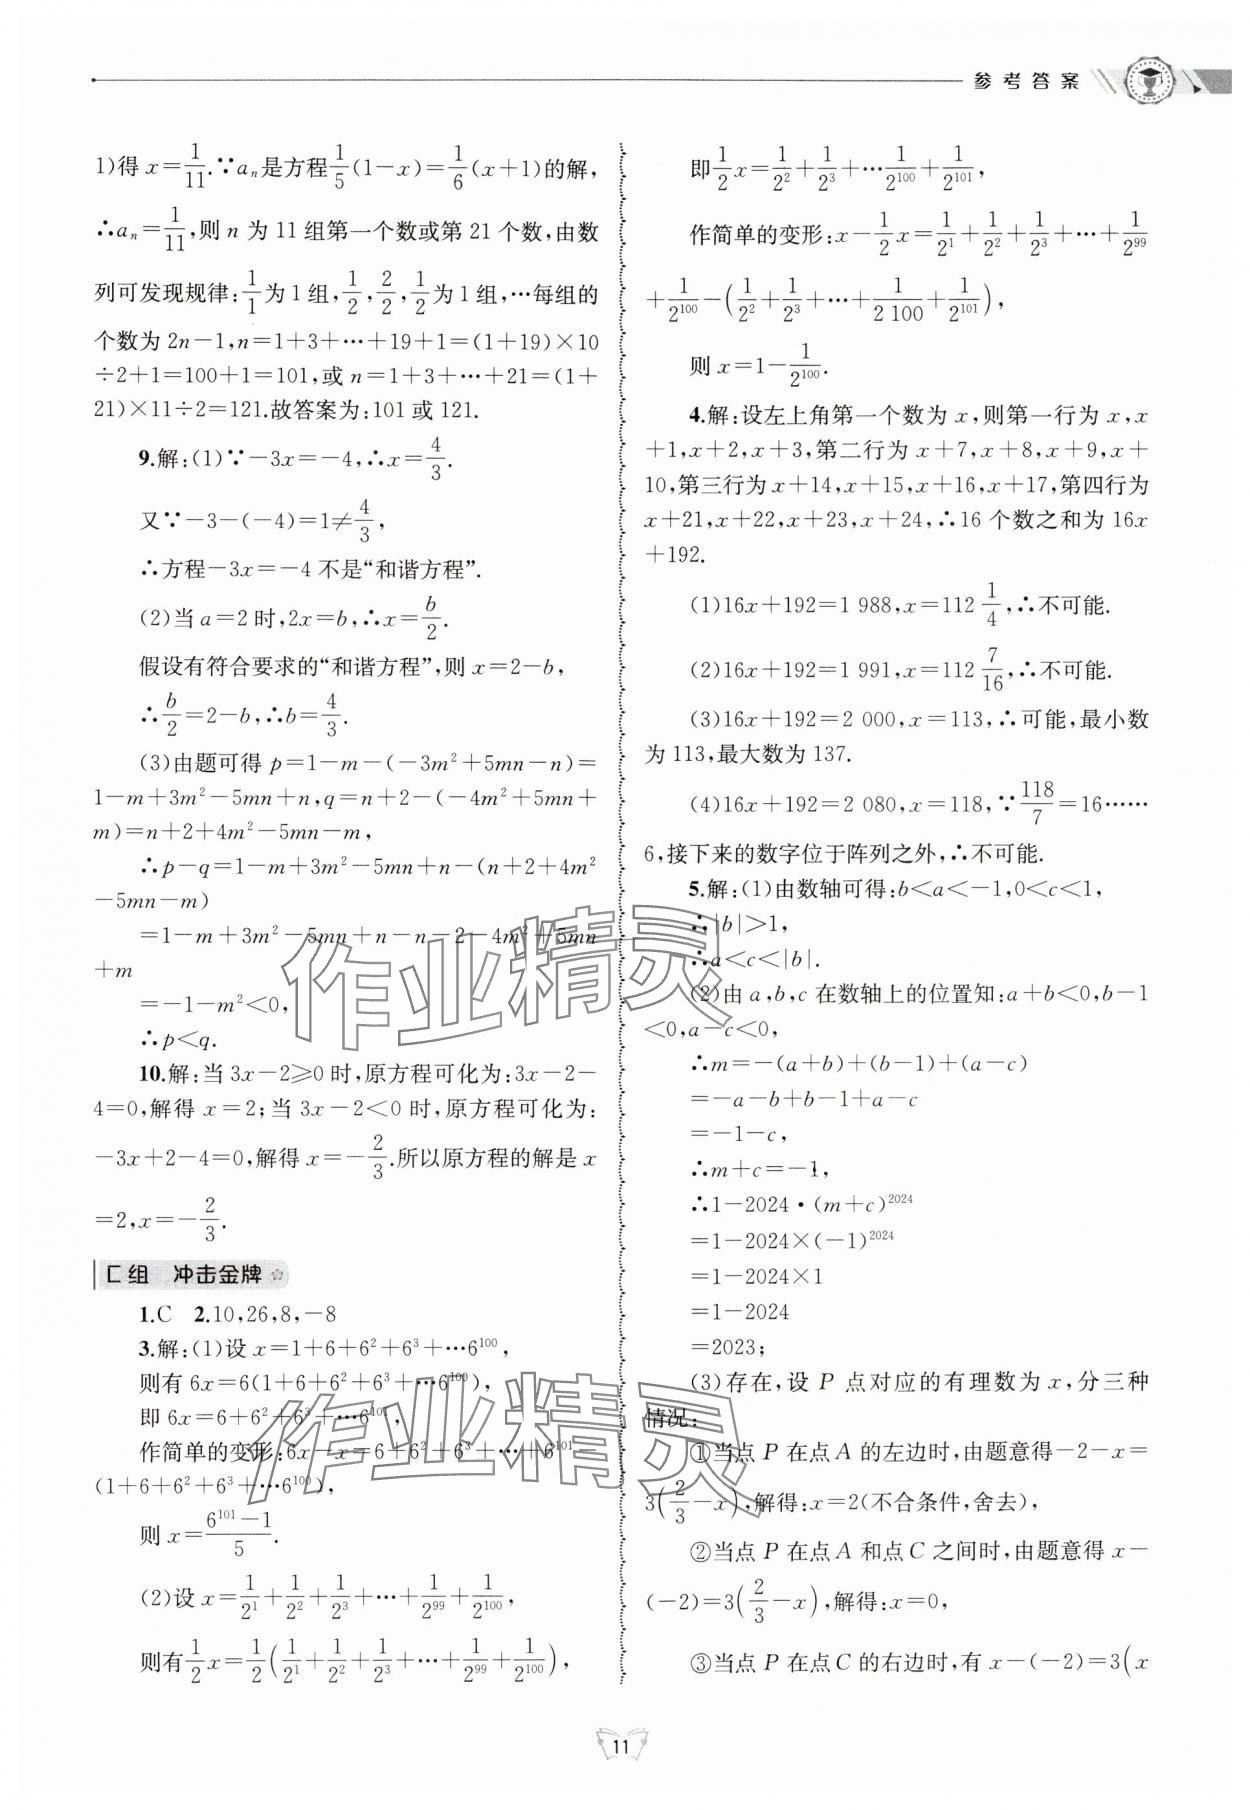 参考答案
1)得 x=1/11.∵aₙ是方程1/5(1-x)=1/6(x+1)的解,
∴aₙ=1/11,则 n 为 11 组第一个数或第 21 个数,由数
列可发现规律:1/1为 1 组,1/2,2/2,1/2为 1 组,…每组的
个数为 2n-1,n=1+3+…+19+1=(1+19)×10
÷2+1=100+1=101,或 n=1+3+…+21=(1+
21)×11÷2=121.故答案为:101 或 121.
9.解:(1)∵-3x=-4,∴x=4/3.
又∵-3-(-4)=1≠4/3,
∴方程-3x=-4 不是“和谐方程”.
(2)当 a=2 时,2x=b,∴x=b/2.
假设有符合要求的“和谐方程”,则 x=2-b,
∴b/2=2-b,∴b=4/3.
(3)由题可得 p=1-m-(-3m²+5mn-n)=
1-m+3m²-5mn+n,q=n+2-(-4m²+5mn+
m)=n+2+4m²-5mn-m,
∴p-q=1-m+3m²-5mn+n-(n+2+4m²
-5mn-m)
=1-m+3m²-5mn+n-n-2-4m²+5mn
+m
=-1-m²<0,
∴p<q.
10.解:当 3x-2≥0 时,原方程可化为:3x-2-
4=0,解得 x=2;当 3x-2<0 时,原方程可化为:
-3x+2-4=0,解得 x=-2/3.所以原方程的解是 x
=2,x=-2/3.
C组 冲击金牌
1.C 2.10,26,8,-8
3.解:(1)设 x=1+6+6²+6³+…6¹⁰⁰,
则有 6x=6(1+6+6²+6³+…6¹⁰⁰),
即 6x=6+6²+6³+…6¹⁰¹,
作简单的变形:6x-x=6+6²+6³+…+6¹⁰¹-
(1+6+6²+6³+…6¹⁰⁰),
则 x=(6¹⁰¹-1)/5.
(2)设 x=1/2¹+1/2²+1/2³+…+1/2⁹⁹+1/2¹⁰⁰,
则有1/2x=1/2(1/2¹+1/2²+1/2³+…+1/2⁹⁹+1/2¹⁰⁰),
即1/2x=1/2²+1/2³+…1/2¹⁰⁰+1/2¹⁰¹,
作简单的变形:x-1/2x=1/2¹+1/2²+1/2³+…+1/2⁹⁹
+1/2¹⁰⁰-(1/2²+1/2³+…+1/2 100+1/2¹⁰¹),
则 x=1-1/2¹⁰⁰.
4.解:设左上角第一个数为 x,则第一行为 x,x
+1,x+2,x+3,第二行为 x+7,x+8,x+9,x+
10,第三行为 x+14,x+15,x+16,x+17,第四行为
x+21,x+22,x+23,x+24,∴16 个数之和为 16x
+192.
(1)16x+192=1 988,x=112 1/4,∴不可能.
(2)16x+192=1 991,x=112 7/16,∴不可能.
(3)16x+192=2 000,x=113,∴可能,最小数
为 113,最大数为 137.
(4)16x+192=2 080,x=118,∵118/7=16……
6,接下来的数字位于阵列之外,∴不可能.
5.解:(1)由数轴可得:b<a<-1,0<c<1,
∴|b|>1,
∴a<c<|b|.
(2)由 a,b,c 在数轴上的位置知:a+b<0,b-1
<0,a-c<0,
∴m=-(a+b)+(b-1)+(a-c)
=-a-b+b-1+a-c
=-1-c,
∴m+c=-1,
∴1-2024·(m+c)²⁰²⁴
=1-2024×(-1)²⁰²⁴
=1-2024×1
=1-2024
=2023;
(3)存在,设 P 点对应的有理数为 x,分三种
情况:
①当点 P 在点 A 的左边时,由题意得-2-x=
3(2/3-x),解得:x=2(不合条件,舍去),
②当点 P 在点 A 和点 C 之间时,由题意得 x-
(-2)=3(2/3-x),解得:x=0,
③当点 P 在点 C 的右边时,有 x-(-2)=3(x
作业精灵
作业精灵
11